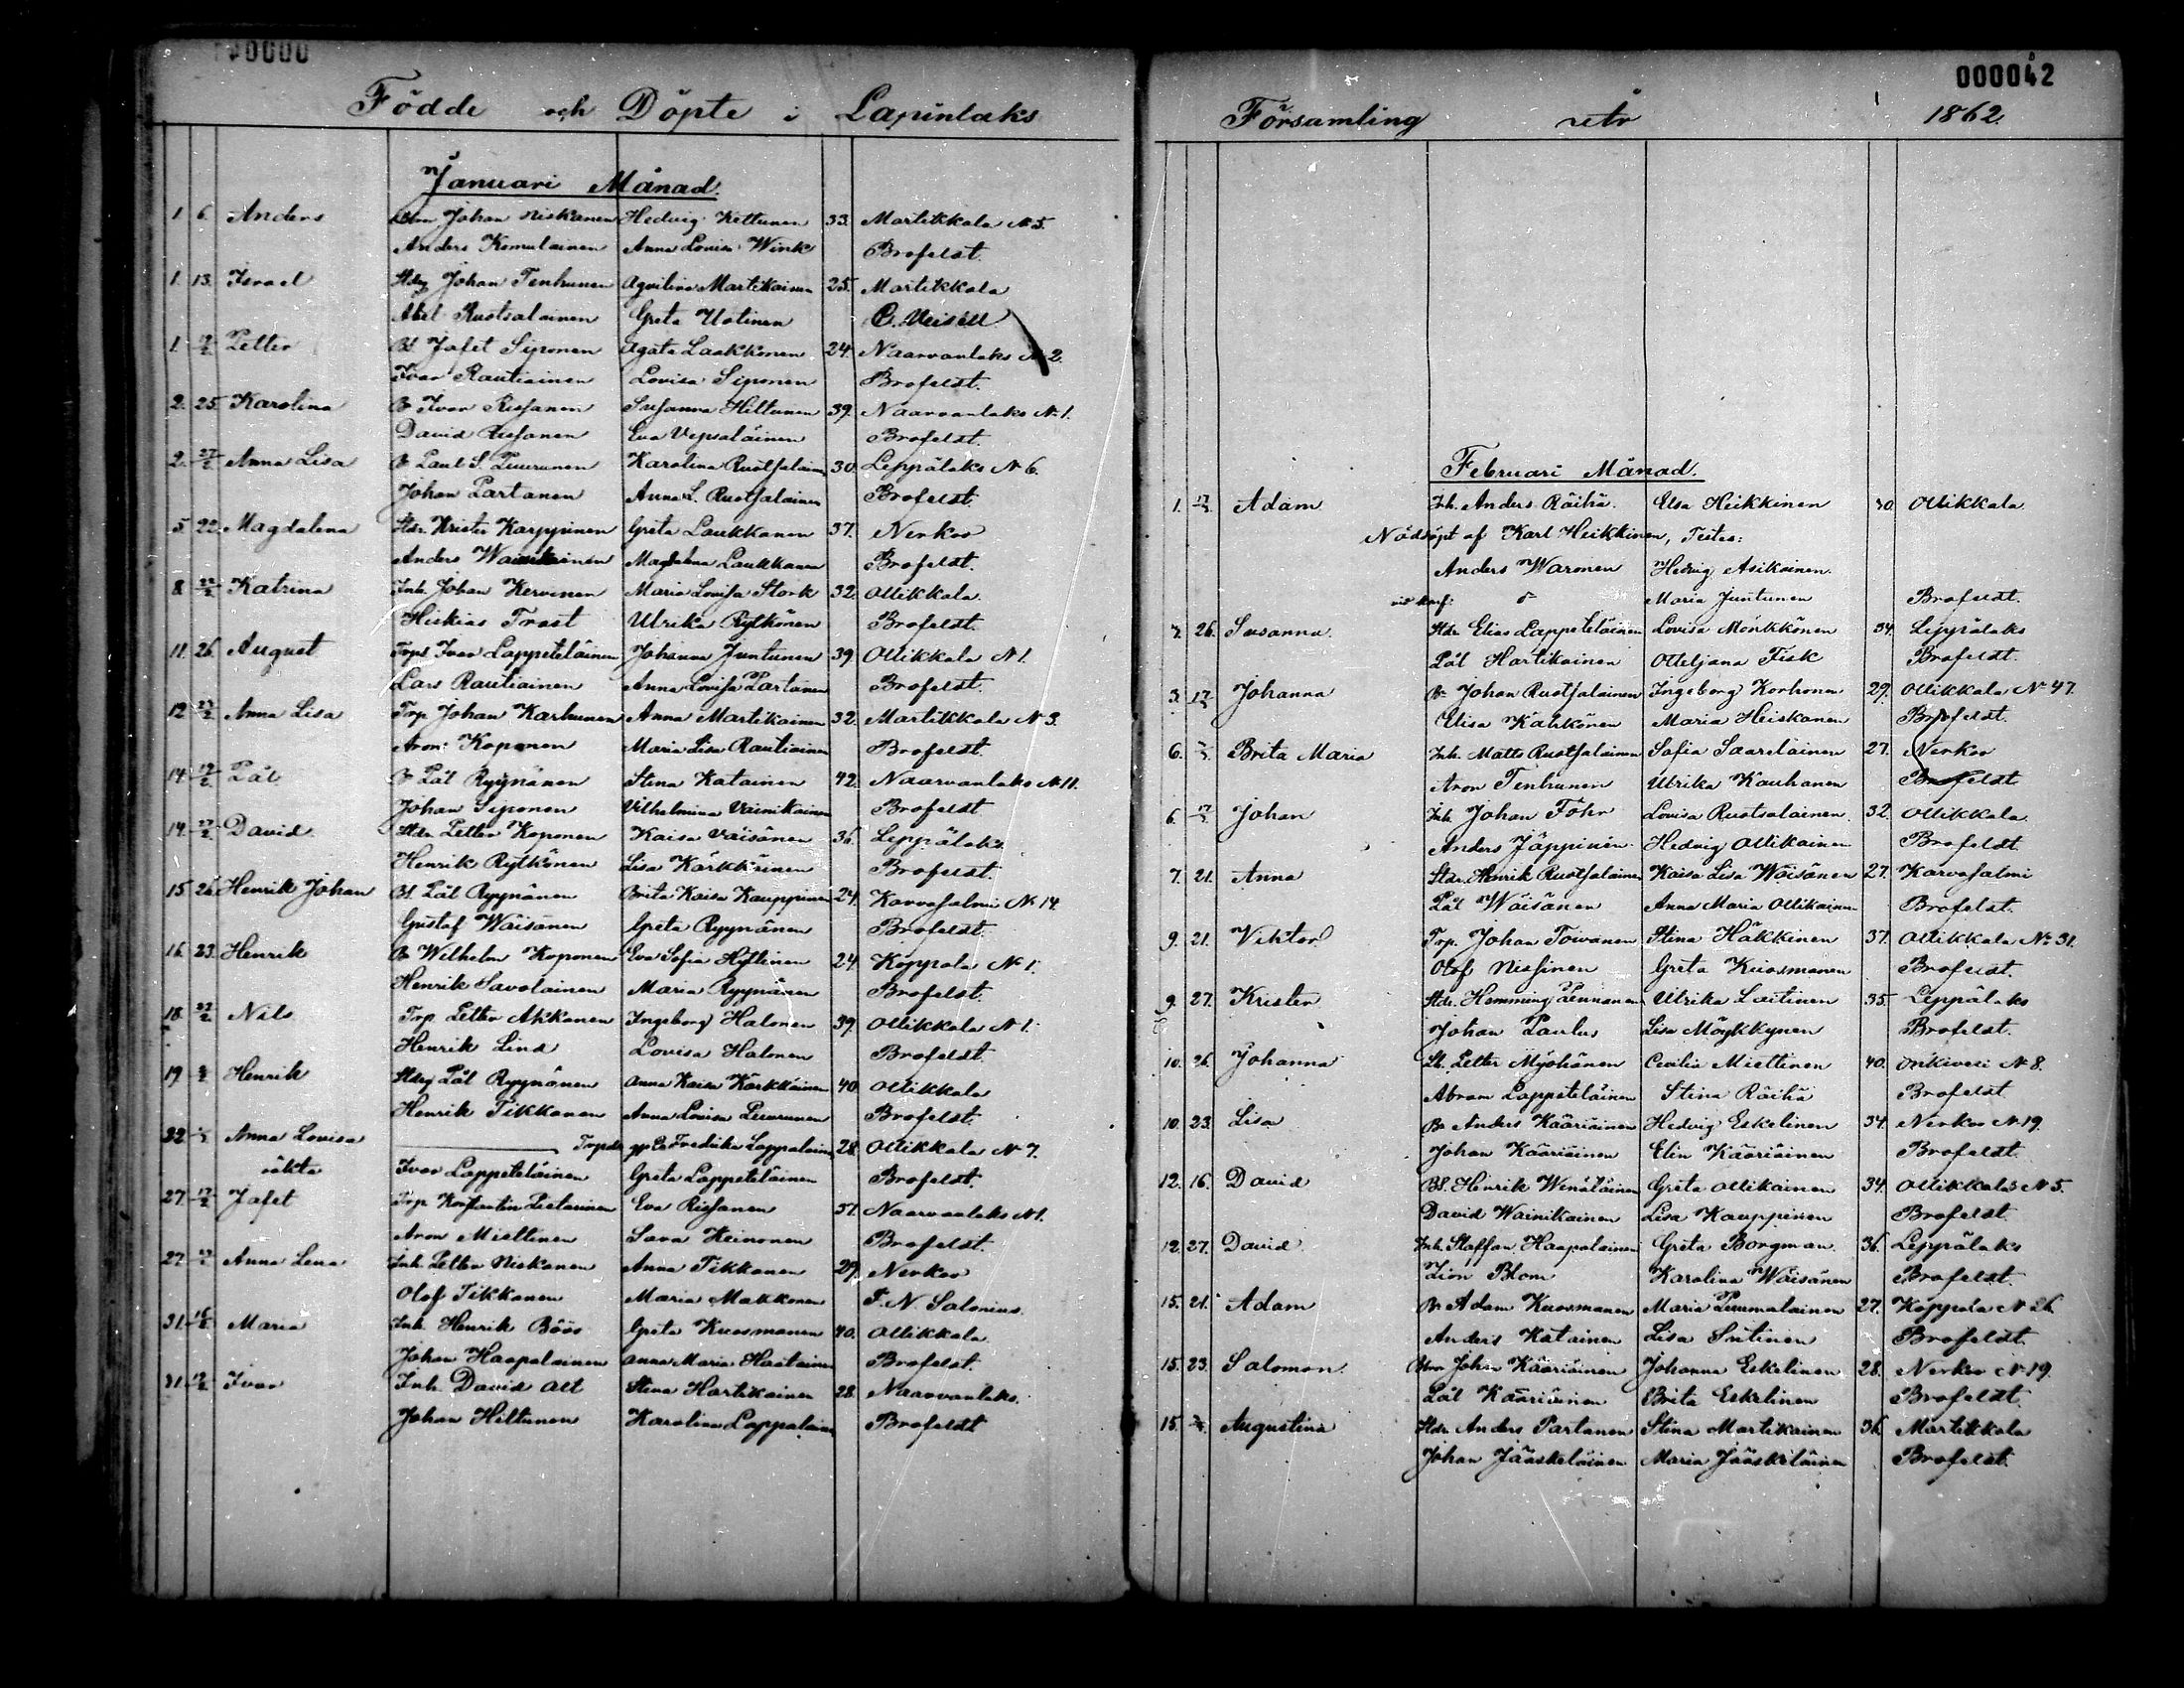 0000
Födde och Döpte i Lapinlaks
Januari Månad.
1. 6. Anders Bon Johan Niskanen Hedvig Kettunen 33. Martikkala N 5.
Anders Komulainen Anna Lovisa Wink Brofeldt.
1. 13. Israel Stdrg Johan Tenhunen Agvilina Martikainen 25. Martikkala
Abel Ruotsalainen Greta Uotinen C. Meisell
1. Petter Bd. Jafet Siponen Agata Laakkonen 24. Naarvanlaks N 2.
Ivar Rautiainen Lovisa Siponen Brofeldt.
2. 25. Karolina B. Ivar Rissanen Susanna Hiltunen 39. Naarvanlaks N 1.
David Rissanen Eva Vepsäläinen Brofeldt.
2. 27/2 Anna Lisa B. Paul S. Puurunen Karolina Ruotsalain 30. Leppälaks N 6.
Johan Partanen Anna L. Ruotsalainen Brofeldt.
5. 22. Magdalena Stdr. Krister Karppinen Greta Laukkanen 37. Nerkoo
Anders Magdalena Laukkanen Brofeldt.
8. 22/2 Katrina Inh. Johan Kervinen Maria Lovisa Stork 32. Ollikkala.
Hiskias Trast Ulrika Rytkönen Brofeldt.
11. 26. August Trpd Ivar Lappeteläinen Johanna Juntunen 39. Ollikkala N 1.
Lars Rautiainen Anna Lovisa Partanen Brofeldt.
12. 27/2 Anna Lisa Trp. Johan Karhunen Anna Martikainen 32. Martikkala N 3.
Aron Koponen Maria Lisa Rautiainen Brofeldt.
14. 19/2 Pål B. Pål Ryynänen Stina Katainen 42. Naarvanlaks N 11.
Johan Siponen Vilhelmina Väinikainen Brofeldt
14. 27/2 David Stdr. Petter Koponen Kaisa Väisänen 36. Leppälaks.
Henrik Rytkönen Lisa Karkkainen Brofeldt.
15. 26. Henrik Johan Bd. Pål Ryynänen Brita Kaisa Kauppinen 24. Karvasalmi N 14.
Gustaf Wäisänen Greta Ryynänen Brofeldt.
16. 23. Henrik B. Wilhelm Koponen Eva Sofia Hyttinen 24. Koppola N 1.
Henrik Savolainen Maria Ryynänen Brofeldt.
18. 22/2 Nils Trp. Petter Akkanen Ingeborg Halonen 39. Ollikkala N 1.
Henrik Lind Lovisa Halonen Brofeldt
19. Henrik Stdrg Pål Ryynänen Anna Kaisa Karkkainen 40. Ollikkala
Henrik Tikkanen Anna Lovisa Puurunen Brofeldt.
22. Anna Lovisa Trpdr Fredrika Lappalainen 28. Ollikkala N 7.
oäkta Ivar Lappeteläinen Greta Lappeteläinen Brofeldt.
27. 17/2 Jafet Trp. Konstantin Pietarinen Eva Rissanen 37. Naarvanlaks N 1.
Aron Miettinen Sara Keinonen Brofeldt.
27. Anna Lena Inh. Petter Niskanen Anna Tikkanen 29. Nerkoo
Olof Tikkanen Maria Makkonen F. N. Salonius.
31. Maria Inh. Henrik Böös Greta Kuosmanen 40. Ollikkala
Johan Haapalainen Anna Maria Haatainen Brofeldt
31. Ivar Inh. David Alt Stina Hartikainen 28. Naarvanlaks.
Johan Hiltunen Karolina Lappalainen Brofeldt
000042
Församling år 1862.
Februari Månad.
1. Adam Inh. Anders Räihä. Elsa Heikkinen 30 Ollikkala
Nöddöpt af Karl Heikkinen, Testes:
Anders Waronen Hedvig Asikainen.
Maria Juntunen Brofeldt.
2. 26. Susanna. Stdr. Elias Lappeteläinen Lovisa Mönkkönen 34. Leppälaks
Pål Hartikainen Otteljana Fisk Brofeldt.
3. Johanna B. Johan Ruotsalainen Ingeborg Korhonen 29. Ollikkala N 47.
Elisa Kähkönen Maria Heiskanen Brofeldt.
6. Brita Maria Inh. Matts Ruotsalainen Sofia Saareläinen 27. Nerkoo
Aron Tenhunen Ulrika Kauhanen Brofeldt
6. Johan Inh. Johan Fohr Lovisa Ruotsalainen. 32. Ollikkala.
Anders Jäppinen Hedvig Ollikainen Brofeldt.
7. 21. Anna Stdr. Henrik Ruotsalainen Kaisa Lisa Wäisänen 27. Karvasalmi
Pål Wäisänen Anna Maria Ollikainen Brofeldt.
9. 21. Viktor Trp. Johan Toivanen Stina Häkkinen 37. Ollikkala No 31.
Olof Nissinen Greta Kuosmanen Brofeldt.
9. 27. Krister Stdr. Hemming Pennanen Ulrika Laitinen 35. Leppälaks
Johan Paulus Lisa Möykkynen Brofeldt.
10. 26. Johanna Lb. Petter Myöhänen Cecilia Miettinen 40. Onkivesi N 8.
Abram Lappeteläinen Stina Räihä Brofeldt
10. 23. Lisa Bo Anders Kääriäinen Hedvig Eskelinen 34. Nerkoo N 19.
Johan Kääriäinen Elin Kääriäinen Brofeldt.
12. 16. David Bd. Henrik Wenäläinen Greta Ollikainen 34. Ollikkala N 5.
David Wainikainen Lisa Kauppinen Brofeldt.
12. 27. David. Inh. Staffan Haapalainen Greta Borgman. 36. Leppälaks
Zion Blom Karolina Wäisänen Brofeldt.
15. 21. Adam B. Adam Kuosmanen Maria Puumalainen 27. Koppola N 26.
Anders Katainen Lisa Sutinen Brofeldt.
15. 23. Salomon. Bon Johan Kääriäinen Johanna Eskelinen 28. Nerkoo N 19.
Pål Kääriäinen Brita Eskelinen Brofeldt.
15. Augustina Stdr. Anders Partanen Stina Martikainen 36. Martikkala
Johan Jääskeläinen Maria Jääskeläinen Brofeldt.